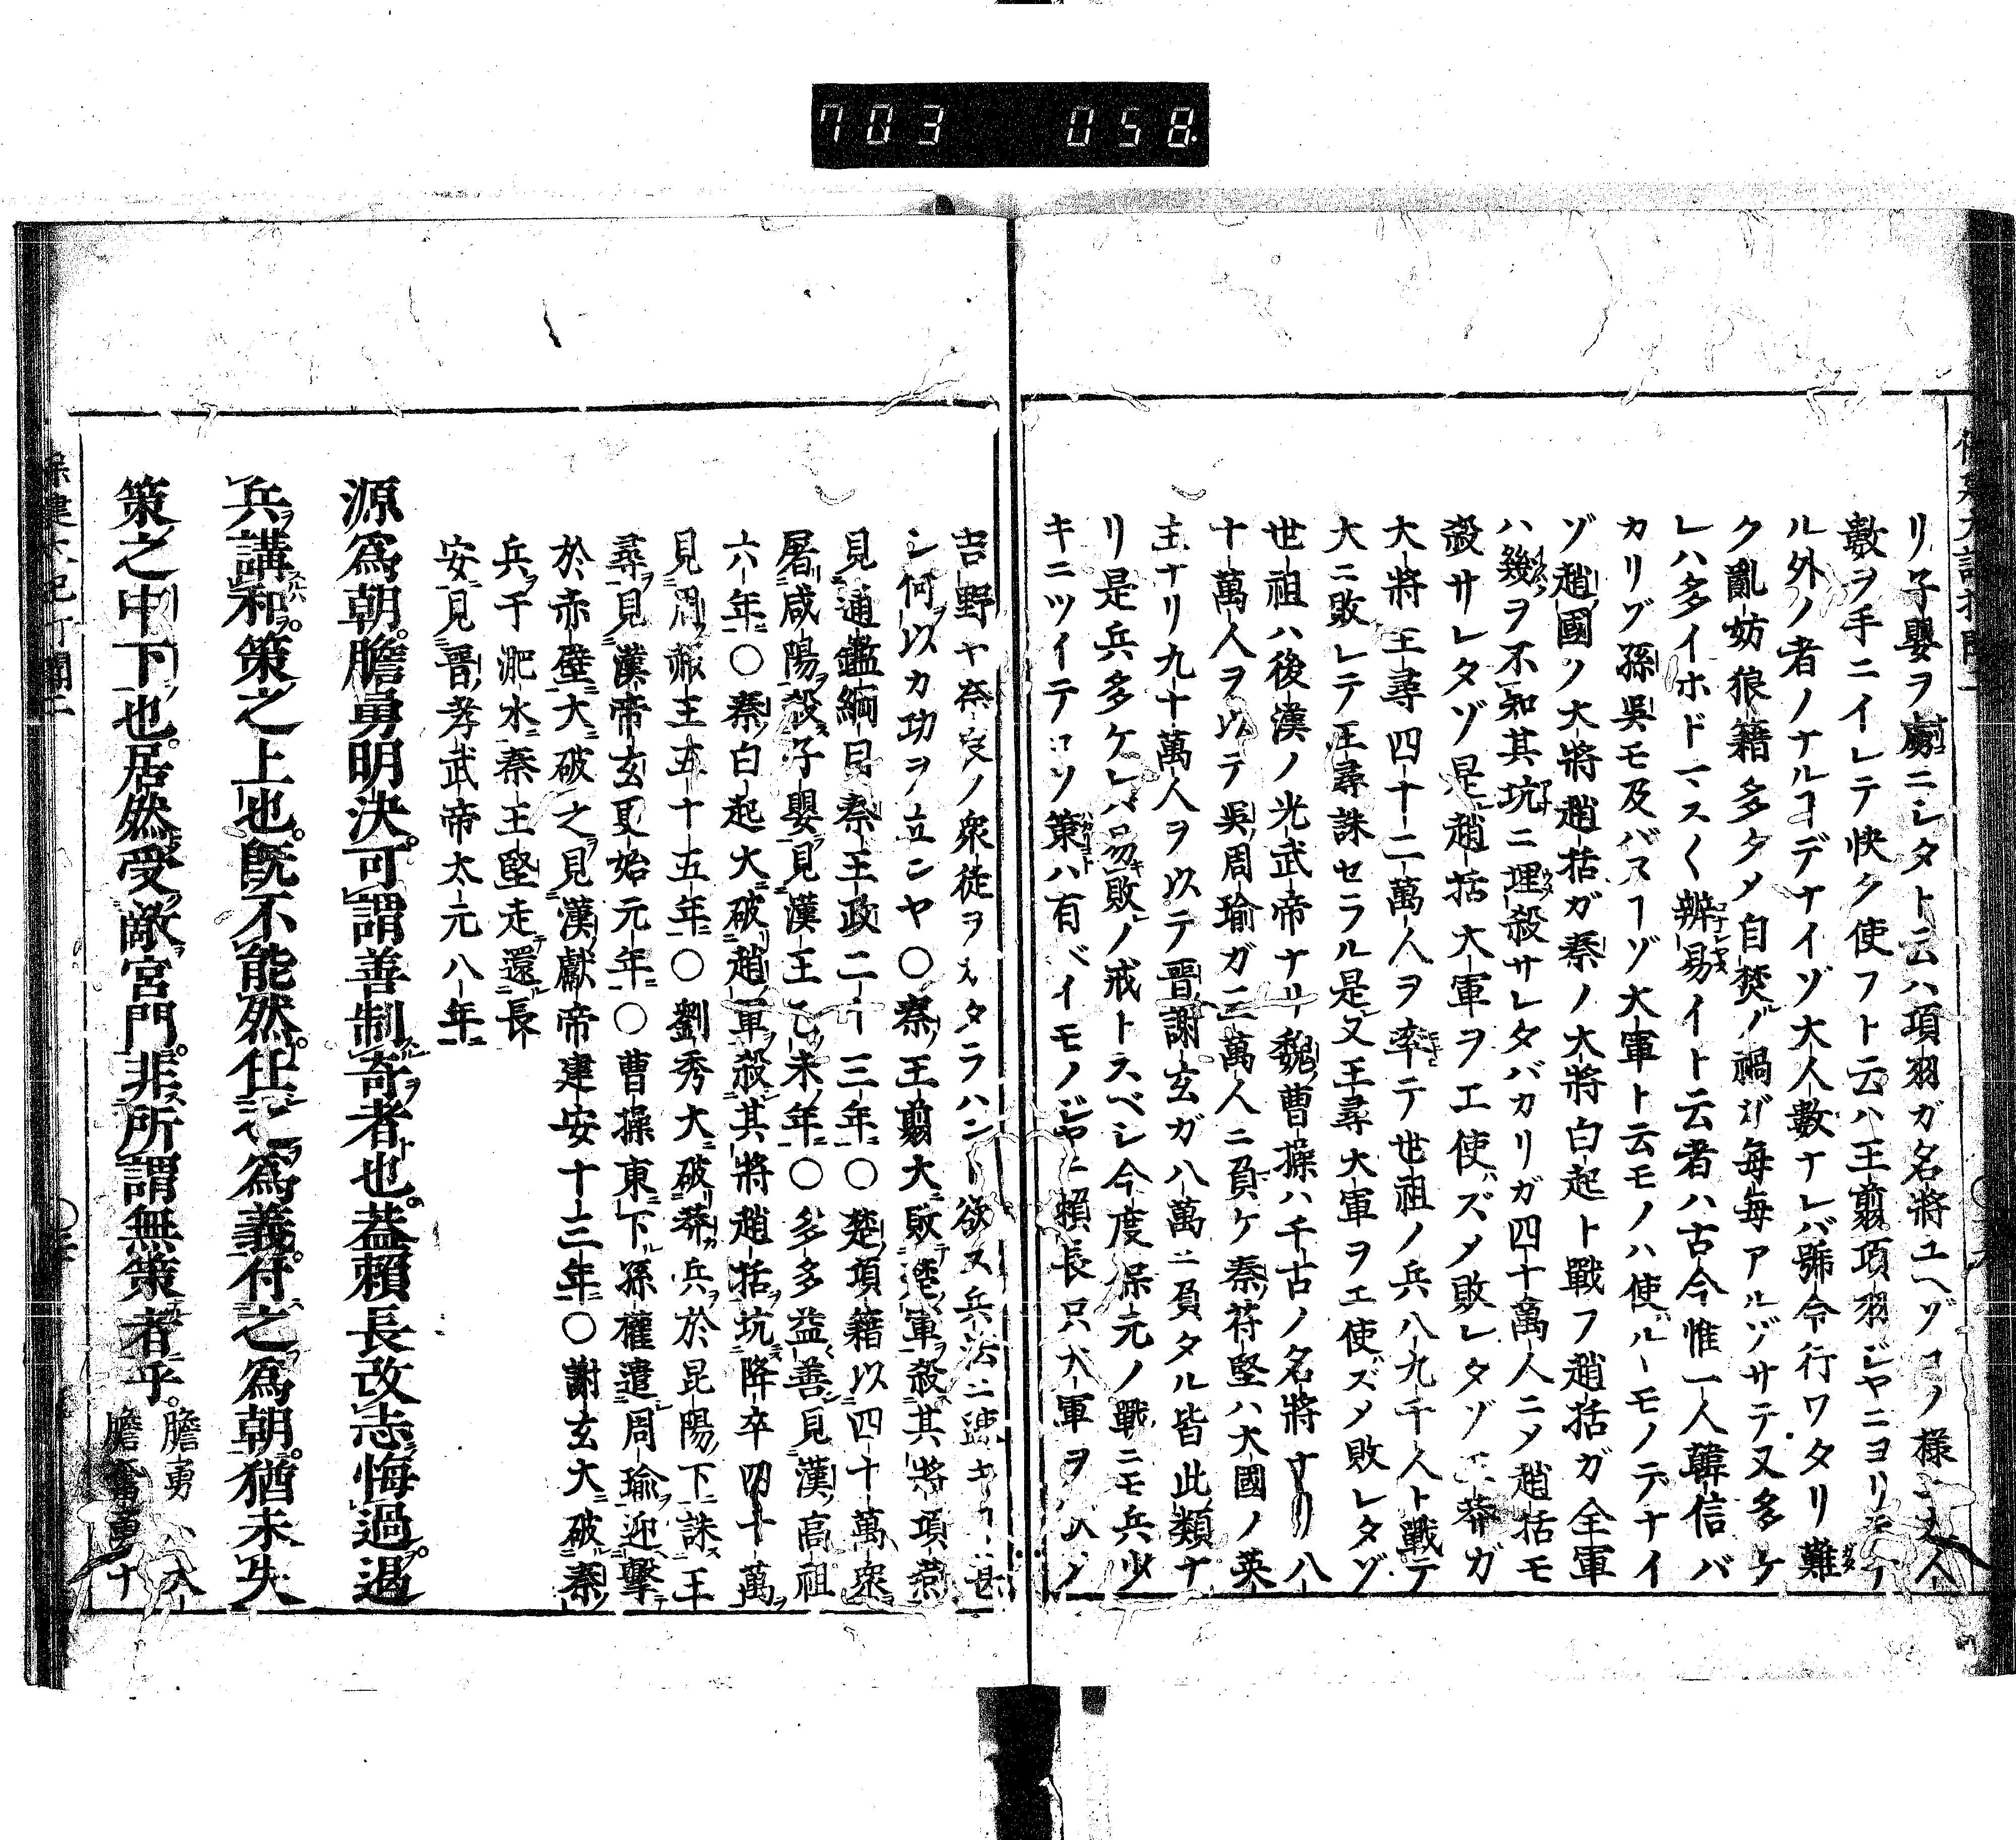 703 058
リ子嬰ヲ虜ニシタト云ハ項羽ガ名將ユヘゾコノ様ニ大人
數ヲ手ニイレテ快ク使フト云ハ王翦項羽ジヤニヨリテ
ル外ノ者ノナルヿデナイゾ大人數ナレバ號令行ワタリ難
ク亂妨狼籍多クメ自焚ノ禍ガ毎毎アルゾサテ又多ケ
レハ多イホドマスく辨易イト云者ハ古今惟一人韓信バ
カリゾ孫吳モ及バヌヿゾ大軍ト云モノハ使ルヽモノデナイ
ゾ趙國ノ大將趙括ガ秦ノ大將白起ト戰フ趙括ガ全軍
ハ幾ヲ不知其坑ニ埋殺サレタバカリガ四十萬人ニメ趙括モ
殺サレタゾ是趙括大軍ヲエ使ハズメ敗レタゾ王莽ガ
大將王尋四十二萬人ヲ率テ世祖ノ兵八九千人ト戰テ
大ニ敗レテ王尋誅セラル是又王尋大軍ヲエ使ズメ敗レタゾ
世祖ハ後漢ノ光武帝ナリ魏曹操ハ千古ノ名將ナリ八
十萬人ヲ以テ吳周瑜ガ三萬人ニ負ケ秦苻堅ハ大國ノ英
主ナリ九十萬人ヲ以テ晋謝玄ガ八萬ニ負タル皆此類ナ
リ是兵多ケレハ易敗ノ戒トスベシ今度保元ノ戰ニモ兵少
キニツイテコソ策ハ有ベイモノジヤニ頼長只大軍ヲ
吉野ヤ奈良ノ衆徒ヲ
シ何以カ功ヲ立ンヤ〇秦王翦大敗楚軍殺其將項燕
見通鑑綱目秦王政二十三年〇楚項籍以四十萬衆
屠咸陽殺子嬰見漢王乙未年〇多多益善見漢高祖
六年〇秦白起大破趙軍殺其將趙括坑降卒四十萬
見周赧王五十五年〇劉秀大破莽兵於昆陽下誅王
尋見漢帝玄更始元年〇曹操東下孫權遣周瑜迎擊
於赤壁大破之見漢獻帝建安十三年〇謝玄大破秦
兵于淝水秦王堅走還長
安見晋孝武帝太元八年
源爲朝膽勇明決可謂善制奇者也蓋賴長改志悔過遏
兵講和策之上也既不能然任之爲義付之爲朝猶未失
策之中下也居然受敵宮門非所謂無策者乎
膽勇ハ
膽奮勇